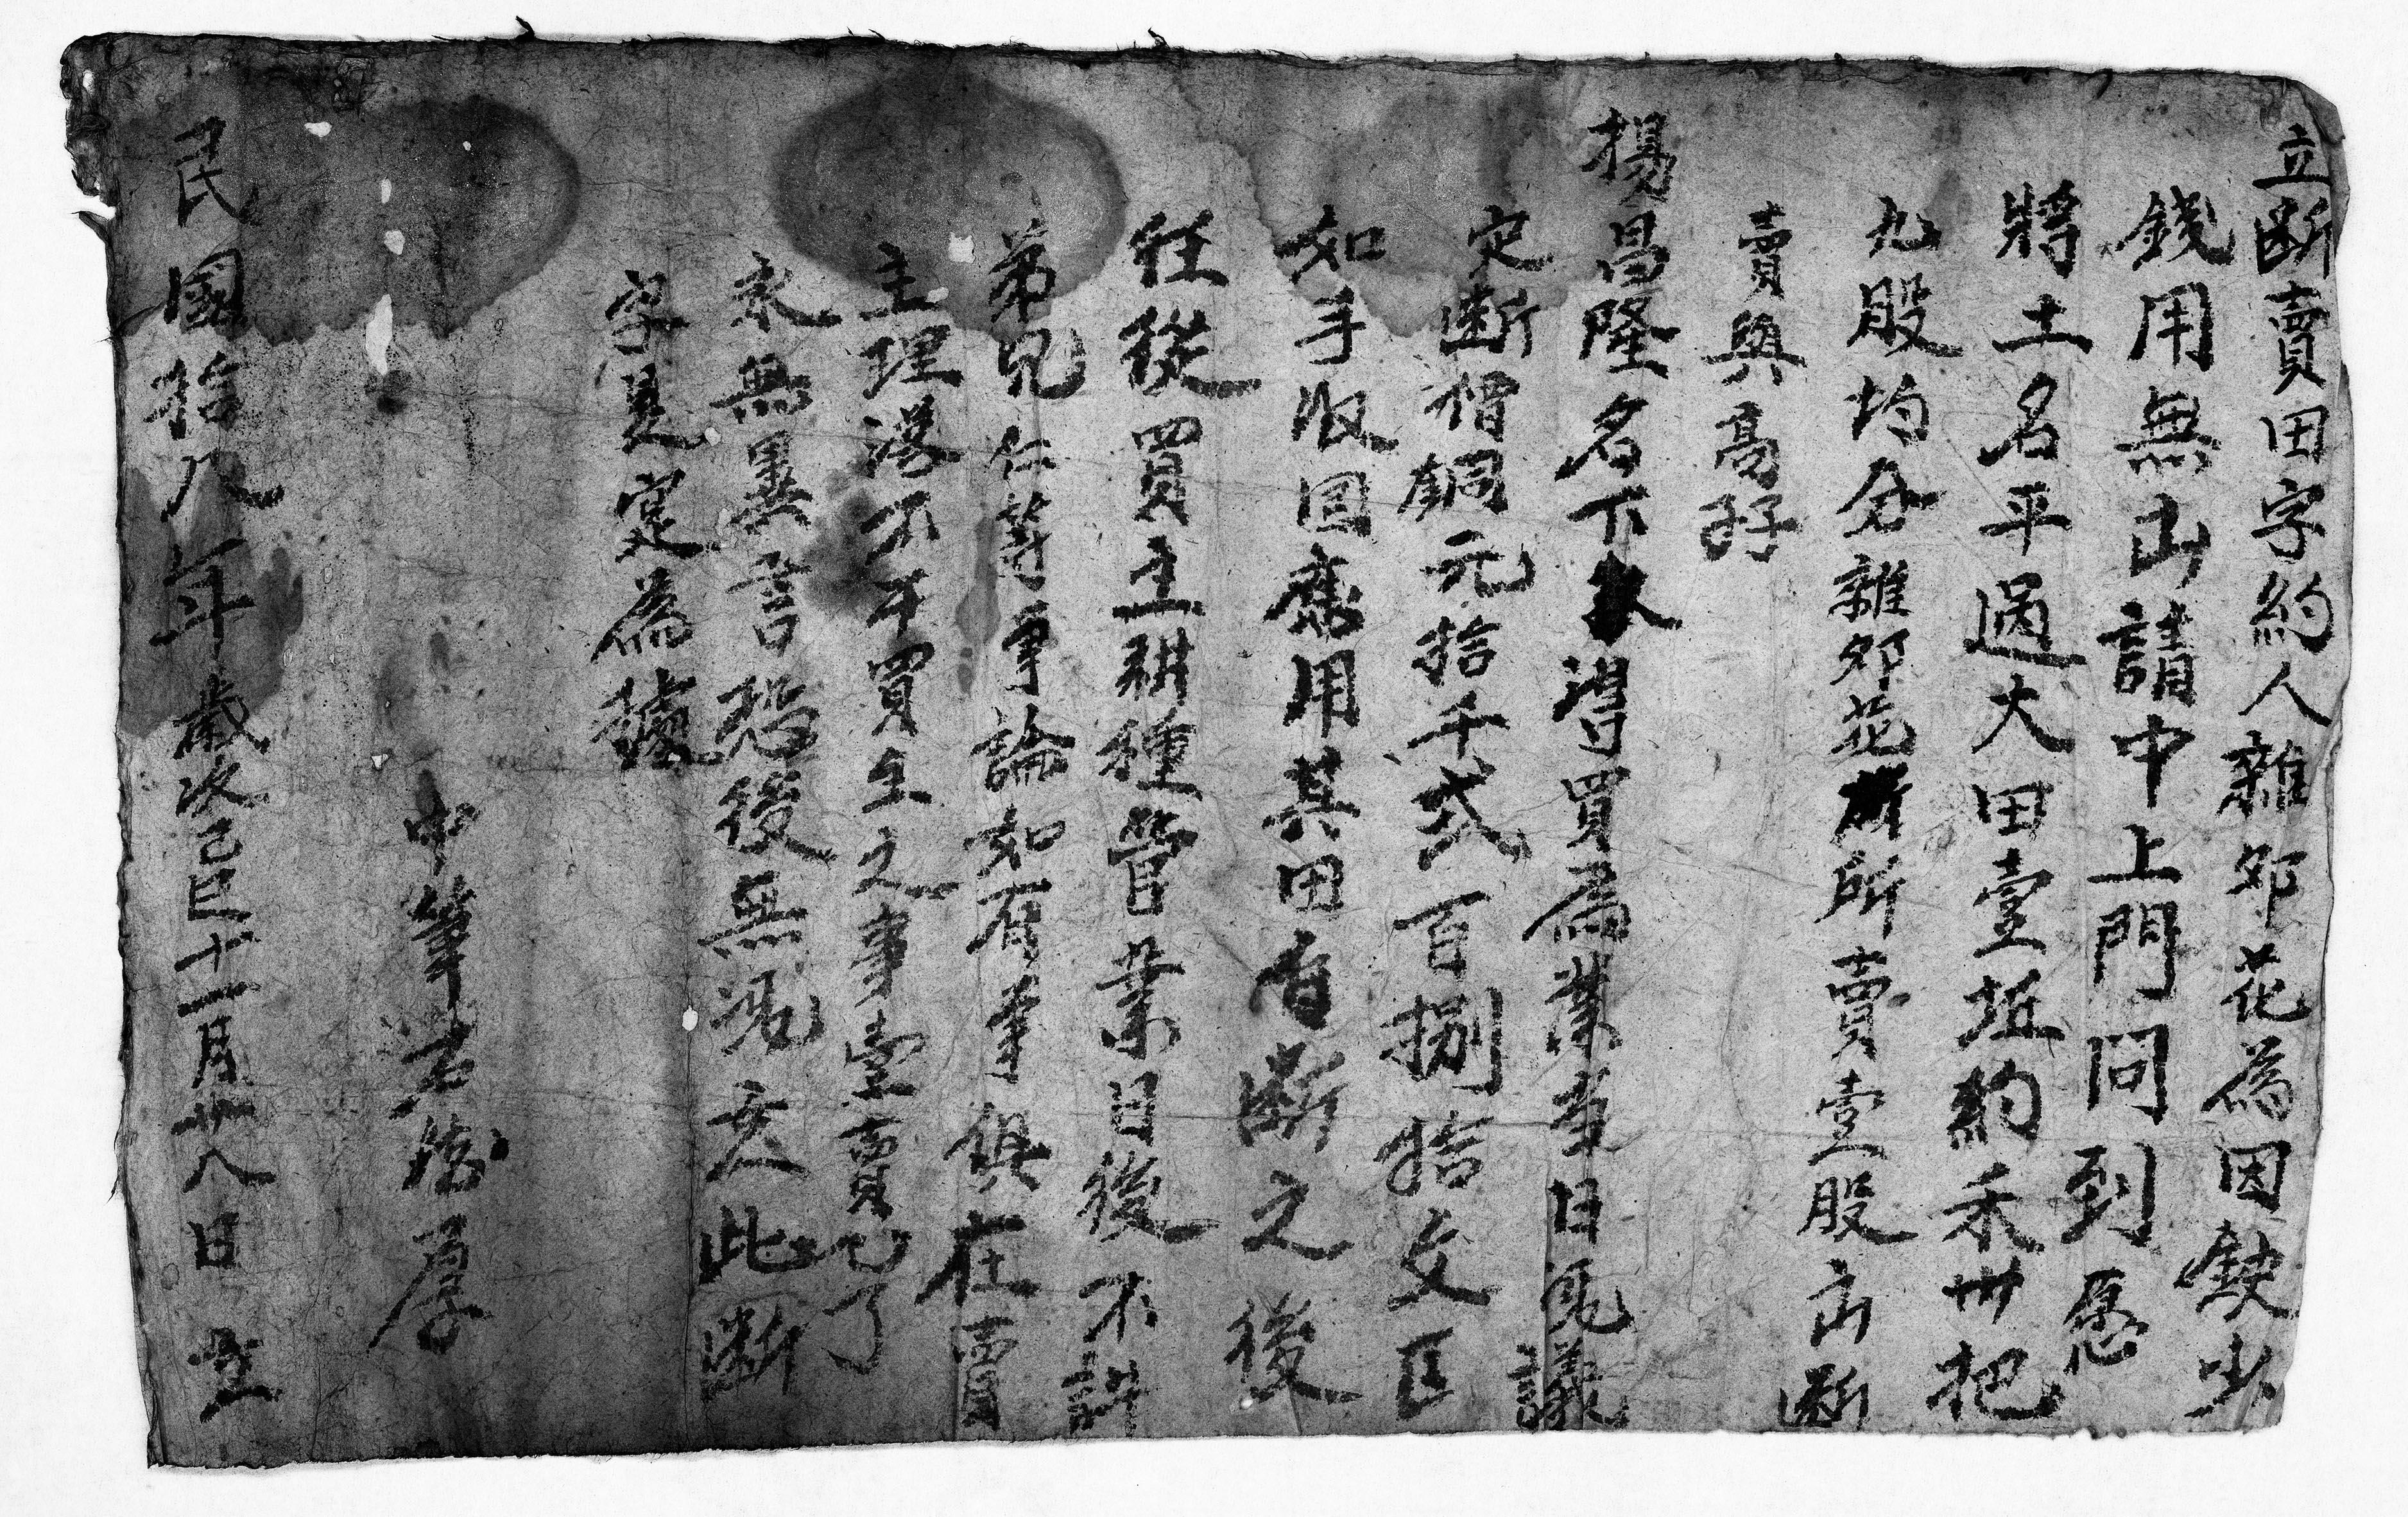 立斷賣田字約人雜邜花為因缺少
錢用無出請中上門問到愿
將土名平過大田壹坵約禾卅把
九股均分雜邜花所賣壹股出斷
賣與高孖
楊昌隆名下得買為業當日凴議
定断價銅元拾千弍百捌拾文正
如手收回應用其田自断之後
任從買主耕種管業日後不許
弟兄仁等爭論如有爭俱在賣
主理落不干買主之事壹賣已了
永無異言恐後無凴立此斷
字是寔為據
中筆
民國拾八年歲次己巳十一月廿八日 立